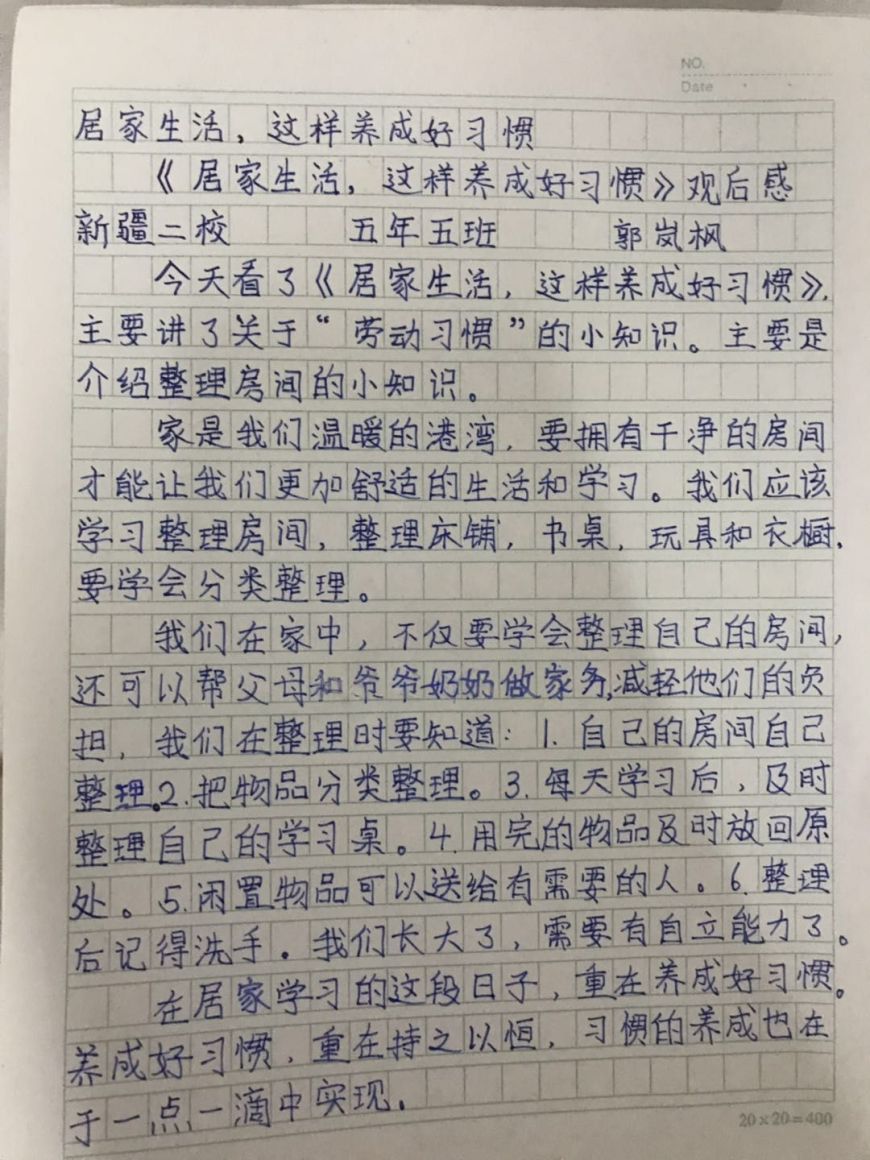 NO.
Date
居家生活，这样养成好习惯
《居家生活，这样养成好习惯》观后感
新疆二校 五年五班 郭岚枫
今天看了《居家生活，这样养成好习惯》，
主要讲了关于“劳动习惯”的小知识。主要是
介绍整理房间的小知识。
家是我们温暖的港湾，要拥有干净的房间
才能让我们更加舒适的生活和学习。我们应该
学习整理房间，整理床铺，书桌，玩具和衣橱，
要学会分类整理。
我们在家中，不仅要学会整理自己的房间，
还可以帮父母和爷爷奶奶做家务，减轻他们的负
担，我们在整理时要知道：1.自己的房间自己
整理。2.把物品分类整理。3.每天学习后，及时
整理自己的学习桌。4.用完的物品及时放回原
处。5.闲置物品可以送给有需要的人。6.整理
后记得洗手。我们长大了，需要有自立能力了。
在居家学习的这段日子，重在养成好习惯。
养成好习惯，重在持之以恒，习惯的养成也在
于一点一滴中实现。
20×20=400